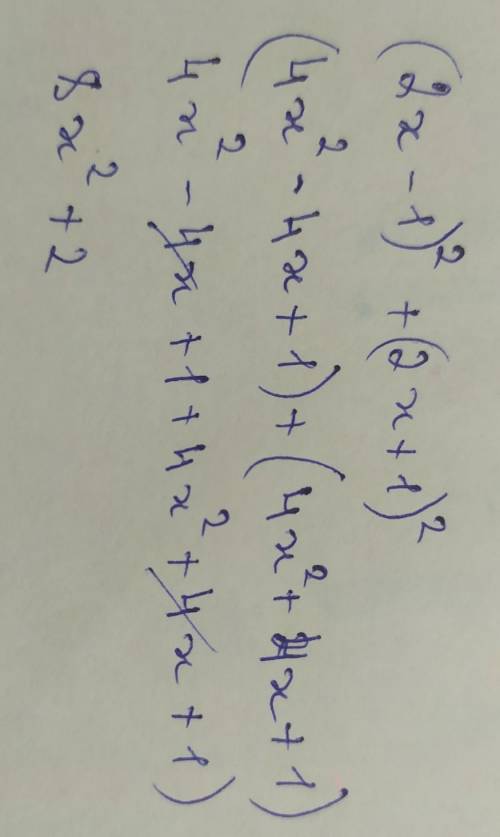 (2x - 1)² + (2x + 1)²
(4x² - 4x + 1) + (4x² + 4x + 1)
4x² - 4x + 1 + 4x² + 4x + 1)
8x² + 2